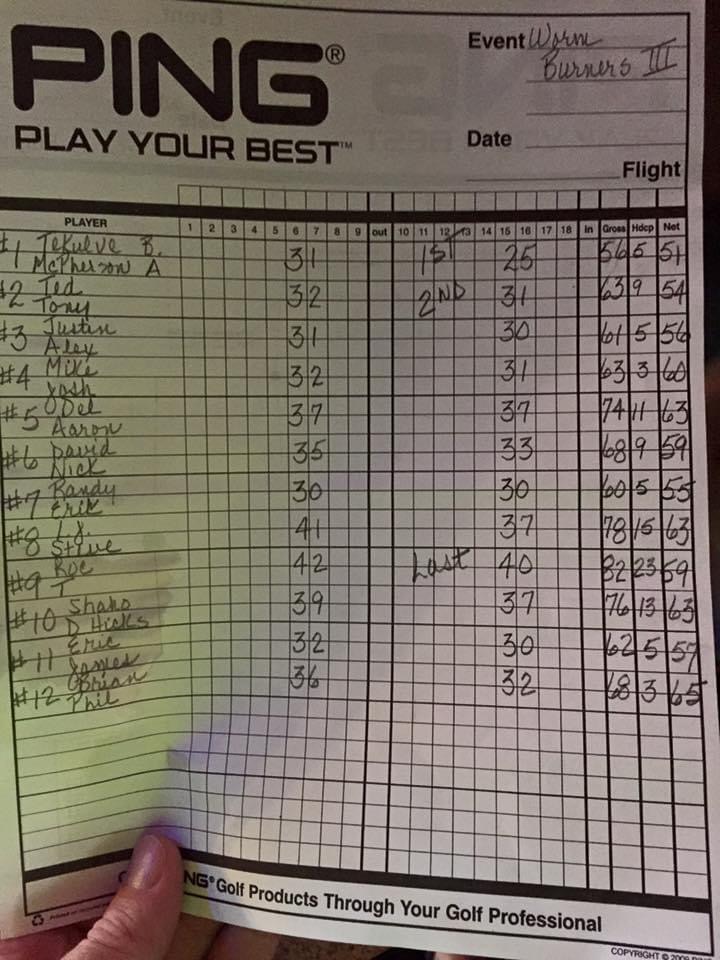 PING®
PLAY YOUR BEST™
Event Worm
Burners III
Date
Flight
PLAYER 1 2 3 4 5 6 7 8 9 out 10 11 12 13 14 15 16 17 18 in Gross Hdcp Net
#1 Tekulve B. 31 1ST 25 56 5 51
McPherson A
#2 Ted 32 2ND 31 63 9 54
Tony
#3 Justin 31 30 61 5 56
Alex
#4 Mike 32 31 63 3 60
Josh
#5 O'Del 37 37 74 11 63
Aaron
#6 David 35 33 68 9 59
Nick
#7 Randy 30 30 60 5 55
Erik
#8 L.J. 41 37 78 15 63
Steve
#9 42 Last 40 82 23 59
T
#10 Shaho 39 37 76 13 63
D Hicks
#11 Eric 32 30 62 5 57
James
#12 Brian 36 32 68 3 65
Phil
NG® Golf Products Through Your Golf Professional
COPYRIGHT © 2009